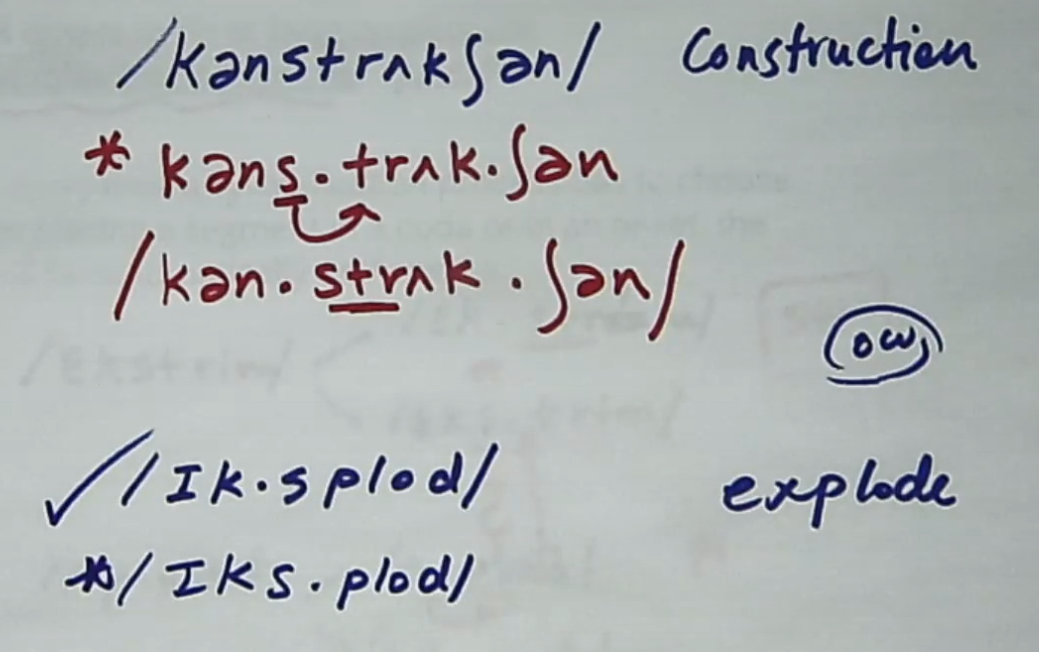 /kənstrʌkʃən/ Construction
* kəns.trʌk.ʃən
/kən.strʌk.ʃən/
ow
✓ /Ik.splod/ explode
* /Iks.plod/